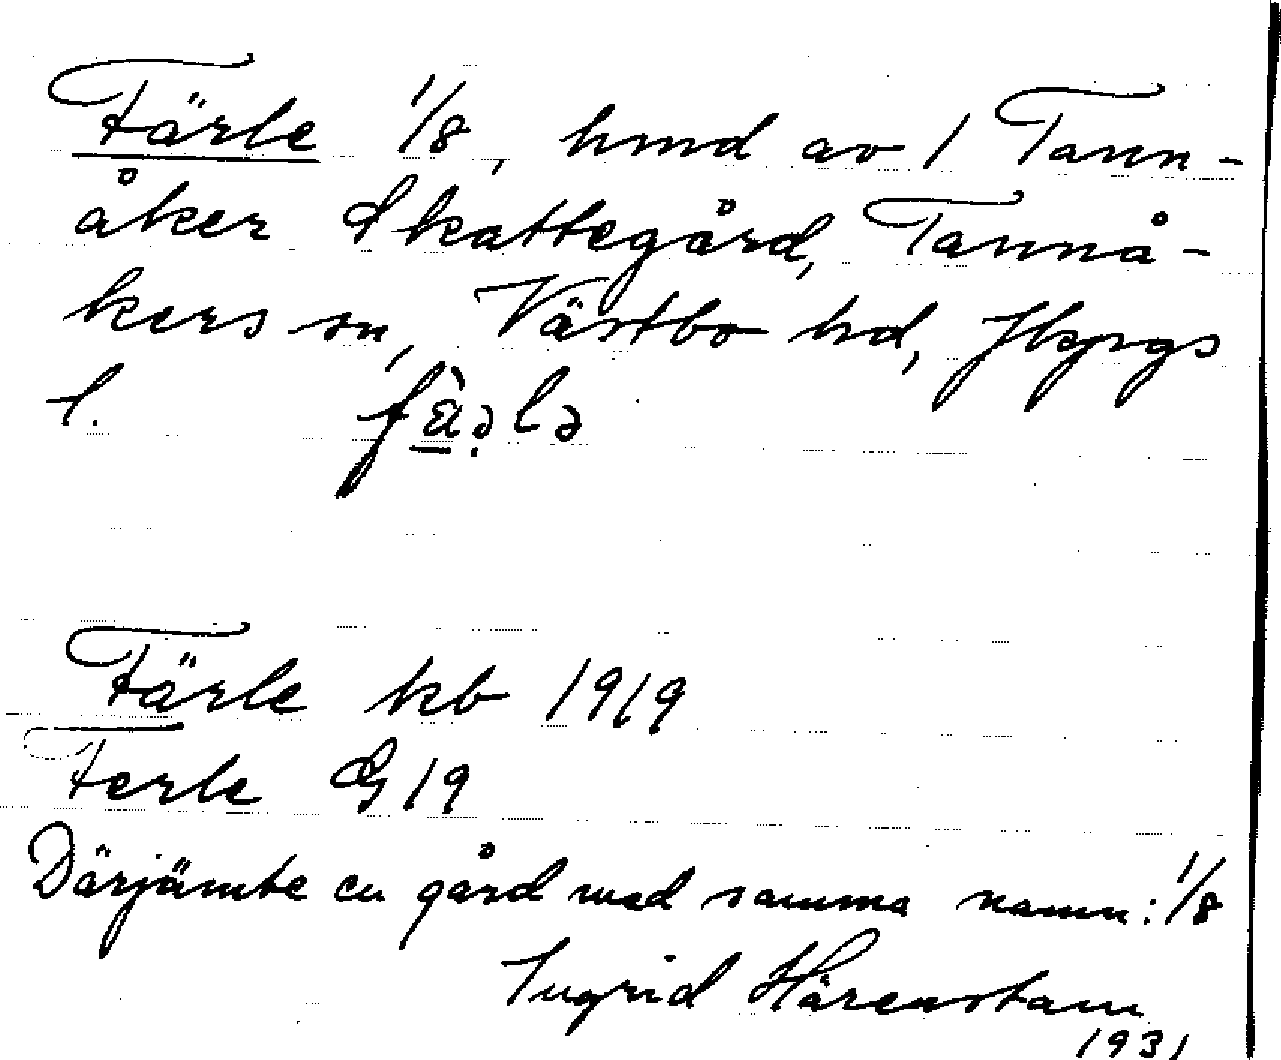 Färle 1/8, hmd av 1 Tann-
åker Skattegård, Tannå-
kers sn, Västbo hd, Jkpgs
l. fä̀ələ
Färle kb 1919
Ferle G 19
Därjämte en gård med samma namn: 1/8
Ingrid Härenstam
1931